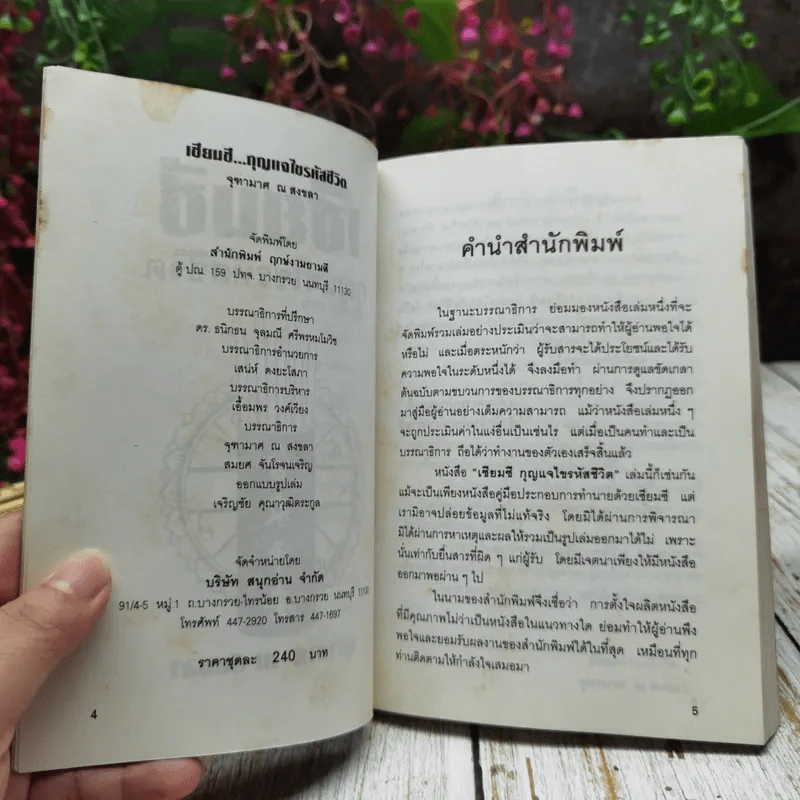 เซียมซี...กุญแจไขรหัสชีวิต
จุฑามาศ ณ สงขลา
จัดพิมพ์โดย
สำนักพิมพ์ ฤกษ์งามยามดี
ตู้ ปณ. 159 ปทจ. บางกรวย นนทบุรี 11130
บรรณาธิการที่ปรึกษา
ดร. ธนิกธน จุลมณี ศรีพรหมโมวิช
บรรณาธิการอำนวยการ
เสน่ห์ ดงยะโสภา
บรรณาธิการบริหาร
เอื้อมพร วงค์เวียง
บรรณาธิการ
จุฑามาศ ณ สงขลา
สมยศ จันโรจนเจริญ
ออกแบบรูปเล่ม
เจริญชัย คุณาวุฒิตระกูล
จัดจำหน่ายโดย
บริษัท สนุกอ่าน จำกัด
91/4-5 หมู่ 1 ถ.บางกรวย-ไทรน้อย อ.บางกรวย นนทบุรี 11130
โทรศัพท์ 447-2920 โทรสาร 447-1697
ราคาชุดละ 240 บาท
4
คำนำสำนักพิมพ์
ในฐานะบรรณาธิการ ย่อมมองหนังสือเล่มหนึ่งที่จะ
จัดพิมพ์รวมเล่มอย่างประเมินว่าจะสามารถทำให้ผู้อ่านพอใจได้
หรือไม่ และเมื่อตระหนักว่า ผู้รับสารจะได้ประโยชน์และได้รับ
ความพอใจในระดับหนึ่งได้ จึงลงมือทำ ผ่านการดูแลขัดเกลา
ต้นฉบับตามขบวนการของบรรณาธิการทุกอย่าง จึงปรากฏออก
มาสู่มือผู้อ่านอย่างเต็มความสามารถ แม้ว่าหนังสือเล่มหนึ่ง ๆ
จะถูกประเมินค่าในแง่อื่นเป็นเช่นไร แต่เมื่อเป็นคนทำและเป็น
บรรณาธิการ ถือได้ว่าทำงานของตัวเองเสร็จสิ้นแล้ว
หนังสือ "เซียมซี กุญแจไขรหัสชีวิต" เล่มนี้ก็เช่นกัน
แม้จะเป็นเพียงหนังสือคู่มือประกอบการทำนายด้วยเซียมซี แต่
เรามิอาจปล่อยข้อมูลที่ไม่แท้จริง โดยมิได้ผ่านการพิจารณา
มิได้ผ่านการหาเหตุและผลให้รวมเป็นรูปเล่มออกมาได้ไม่ เพราะ
นั่นเท่ากับยื่นสารที่ผิด ๆ แก่ผู้รับ โดยมีเจตนาเพียงให้มีหนังสือ
ออกมาพอผ่าน ๆ ไป
ในนามของสำนักพิมพ์จึงเชื่อว่า การตั้งใจผลิตหนังสือ
ที่มีคุณภาพไม่ว่าเป็นหนังสือในแนวทางใด ย่อมทำให้ผู้อ่านพึง
พอใจและยอมรับผลงานของสำนักพิมพ์ได้ในที่สุด เหมือนที่ทุก
ท่านติดตามให้กำลังใจเสมอมา
5